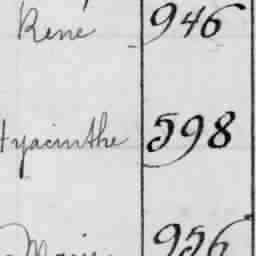 René 946
Hyacinthe 598
Marie 956